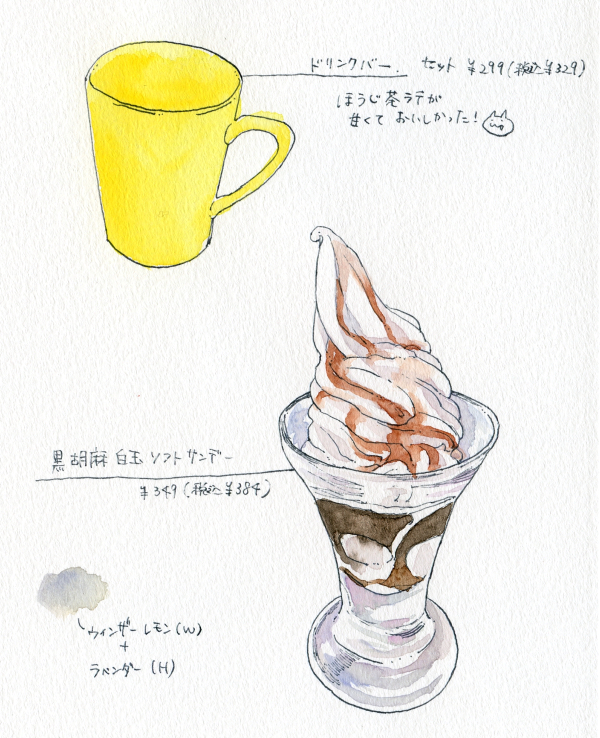 ドリンクバー. セット ¥299(税込¥329)
ほうじ茶ラテが
甘くて おいしかった!
黒胡麻白玉ソフトサンデー
¥349(税込¥384)
ウィンザーレモン(W)
+
ラベンダー(H)